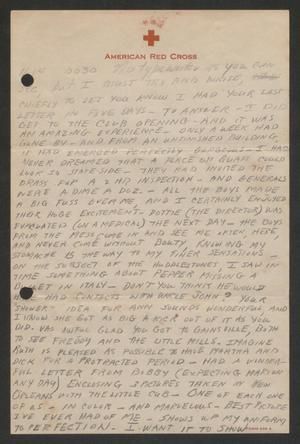 American Red Cross
0030 No typewriter as you can
see but I must try and write,
chiefly to let you know I had your last
letter in five days - to answer - I did
get to the club opening - and it was
an amazing experience. Only a week had
gone by - and from an unfinished building
it had emerged perfectly gorgeous - I had
never dreamed that a place on Guam could
look so state-side - They had invited the
brass for a 2nd inspection - and Generals
were a dime a doz. - All the boys made
a big fuss over me, and I certainly enjoyed
the excitement. Dottie (the director) was
evacuated (on a medical) the next day - the boys
from the press come in and see me often, here,
and never come without booty, knowing my
stomache is the way to my finer sensations -
On the subject of the Huddlestones, I saw in
Time something about Pepper missing a
bullet in Italy - Don't you think he would
have had contacts with Uncle John? Your
shower idea for Ann sounds wonderful and
I know she got as big a kick out of it as you
did. Was awful glad you got to Gainsville, both
to see Freddy and the little Mills. Imagine
Ruth is pleased as possible to have Martha and
Dick for a protracted period - Had a wonder-
ful letter from Bobby (expecting Marion
any day) Enclosing 3 pictures taken in New
Orleans with the little Club - One of each one
of us - in color - and marvelous - Best picture
I've ever had of me - shows up my uniform
to perfection. I want it to show